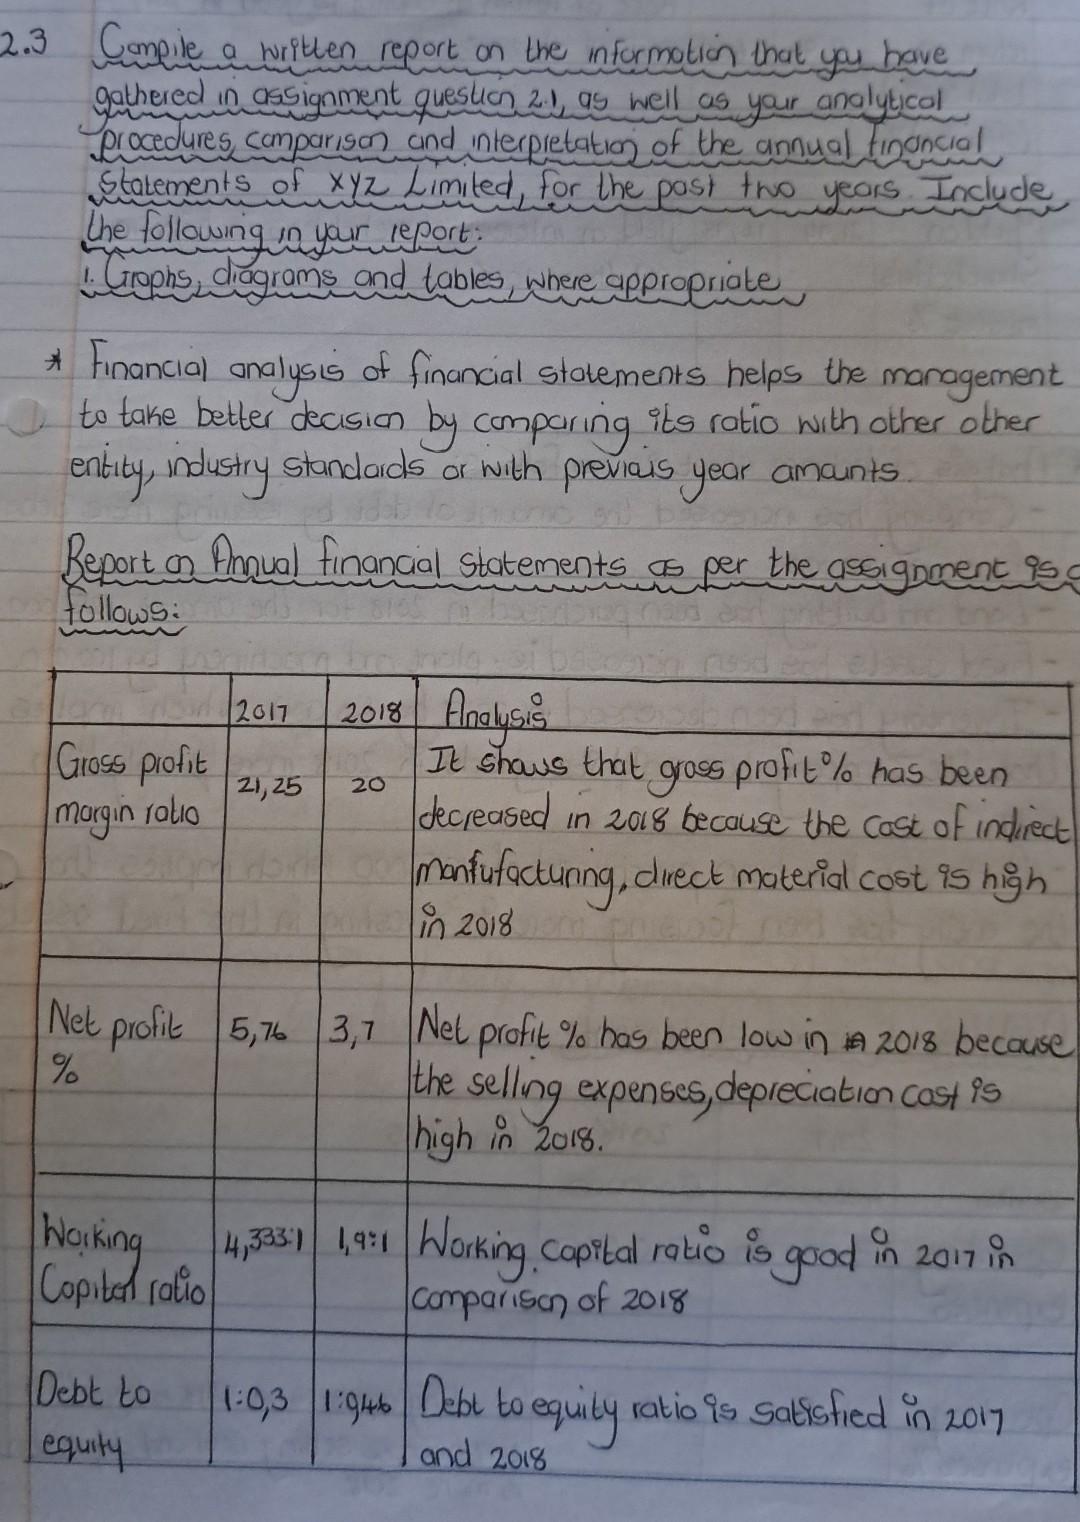 2.3 Compile a written report on the information that you have
gathered in assignment question 2.1, as well as your analytical
procedures, comparison and interpretation of the annual financial
Statements of XYZ Limited, for the past two years. Include
the following in your report:
1. Graphs, diagrams and tables, where appropriate
* Financial analysis of financial statements helps the management
to take better decision by comparing its ratio with other other
entity, industry standards or with previous year amounts.
Report on Annual financial statements as per the assignment is
follows:
2017 2018 Analysis
Gross profit
margin ratio
21,25 20
It shows that gross profit % has been
decreased in 2018 because the cost of indirect
manfufacturing, direct material cost is high
in 2018
Net profit
%
5,76 3,7
Net profit % has been low in 2018 because
the selling expenses, depreciation cost is
high in 2018.
Working
Capital ratio
4,333:1 1,9:1
Working capital ratio is good in 2017 in
comparison of 2018
Debt to
equity
1:0,3
Debt to equity ratio is satisfied in 2017
and 2018